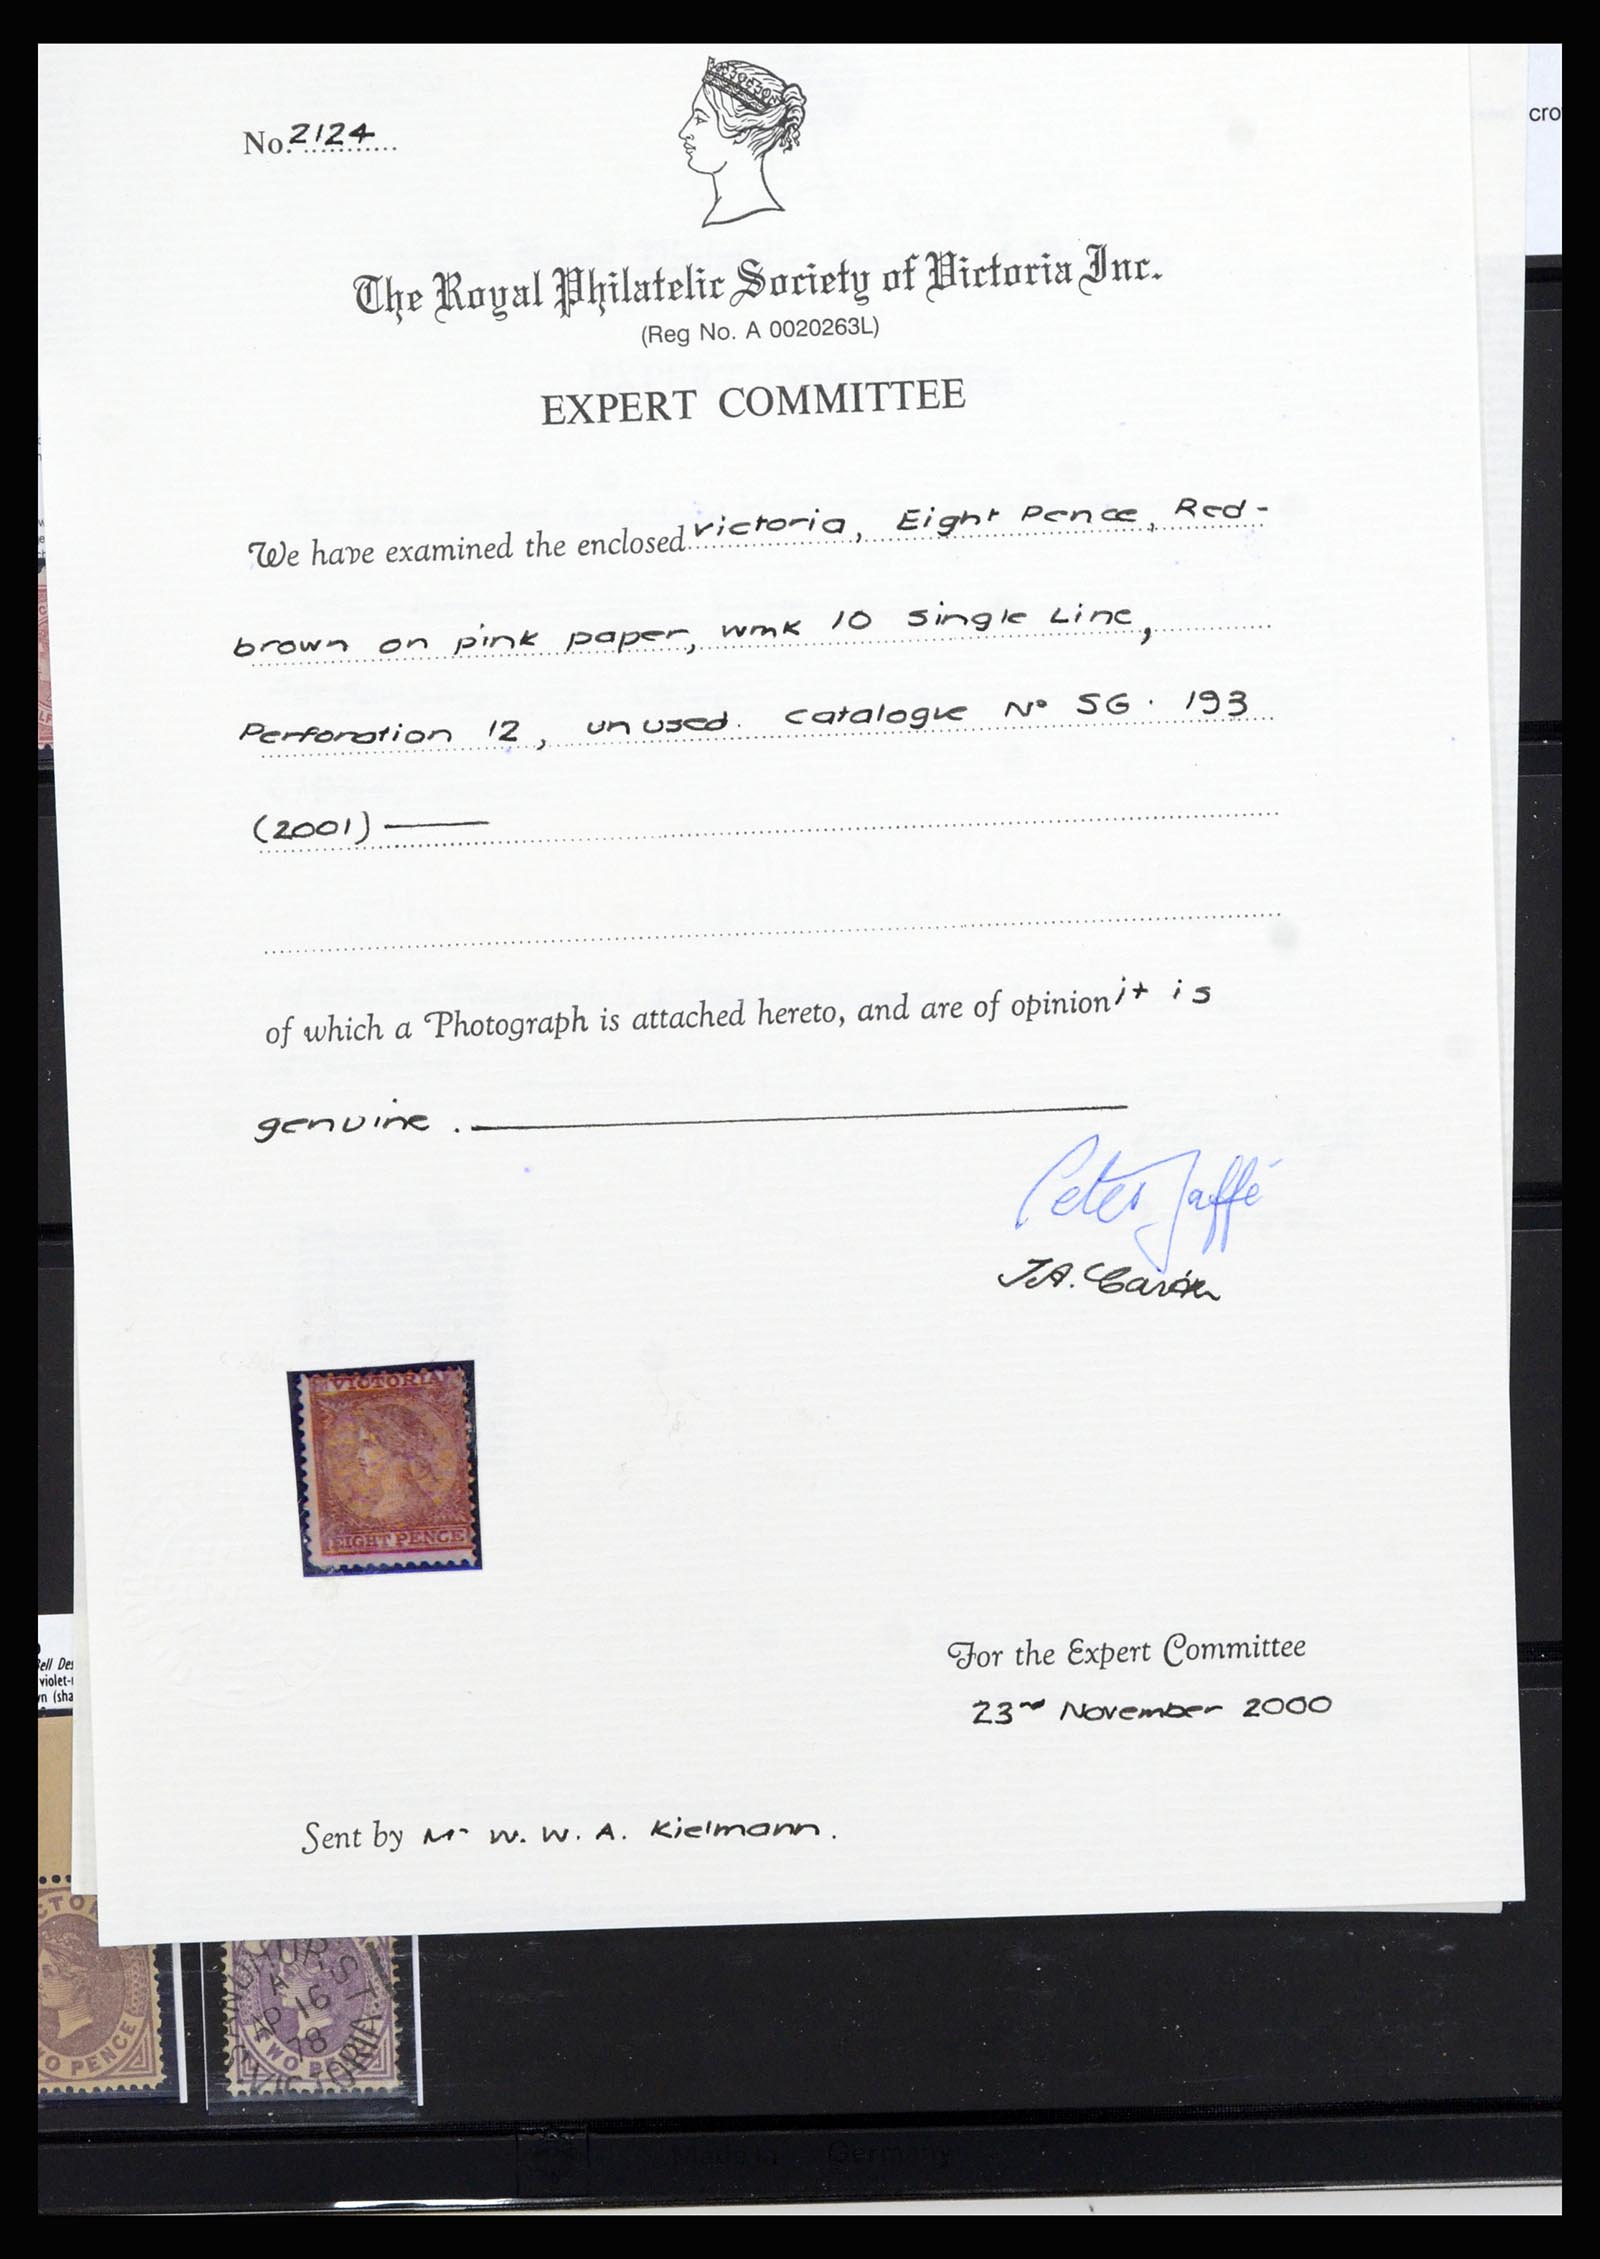 No. 2124
cro
The Royal Philatelic Society of Victoria Inc.
(Reg No. A 0020263L)
EXPERT COMMITTEE
We have examined the enclosed Victoria, Eight Pence, Red-
brown on pink paper, wmk 10 Single Line,
Perforation 12, unused. Catalogue No SG. 193
(2001)
of which a Photograph is attached hereto, and are of opinion it is
genuine.
Peter Jaffé
J.A.
VICTORIA
EIGHT PENCE
For the Expert Committee
23rd November 2000
Sent by Mr W. W. A. Kielmann.
ell Des
violet-
n (sha
CTOR
WO PENCE
SANDHURST
A
AP 16
78
VICTORIA
TWO PE
Made in Germany